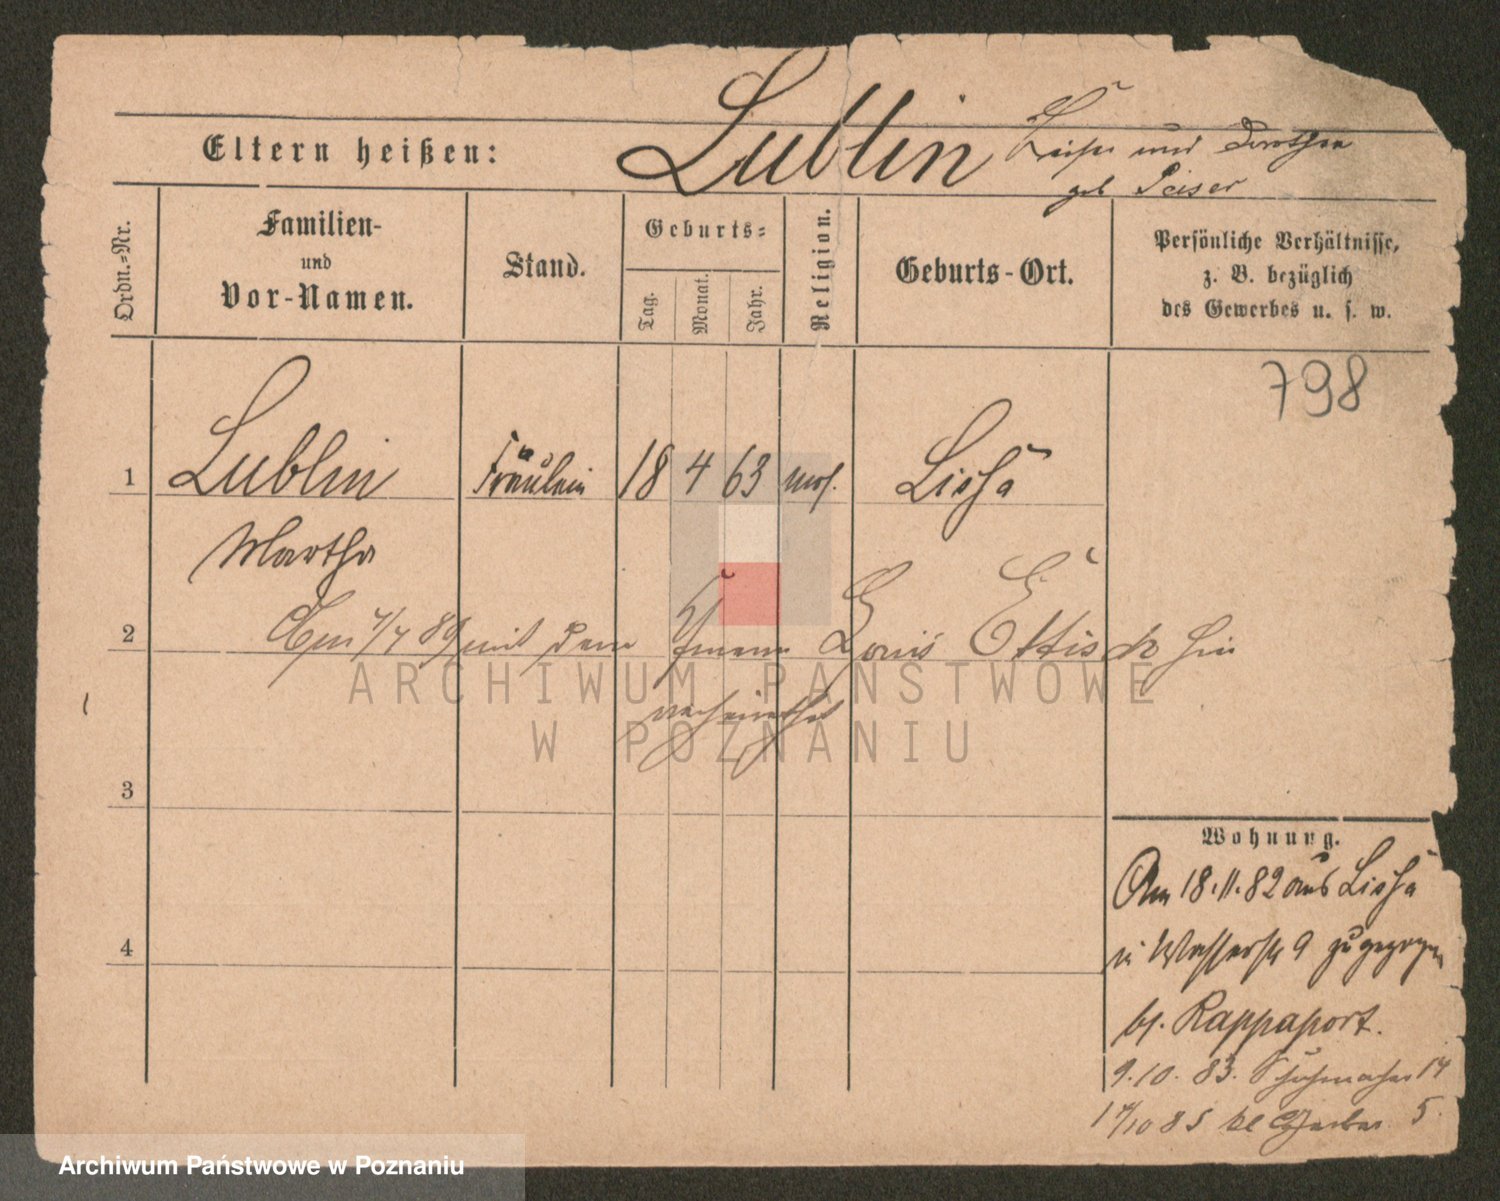 Eltern heißen: Lublin und Dorothea
geb Peiser
Ordn.=Nr.
Familien-
und
Vor-Namen.
Stand.
Geburts=
Tag.
Monat.
Jahr.
Religion.
Geburts-Ort.
Persönliche Verhältnisse,
z. B. bezüglich
des Gewerbes u. s. w.
798
1 Lublin Fräulein 18 4 63 mos. Lissa
Martha
2 Am 7/7 89 mit dem Kfmann Louis Ettisch hier
verheirathet
3
4
Wohnung.
Am 18.11.82 aus Lissa
in Wasserstr 9 zugezogen
bei Rappaport.
9.10. 83. Schuhmacher 14
17/10 85 kl Gerber 5.
ARCHIWUM PAŃSTWOWE
W POZNANIU
Archiwum Państwowe w Poznaniu